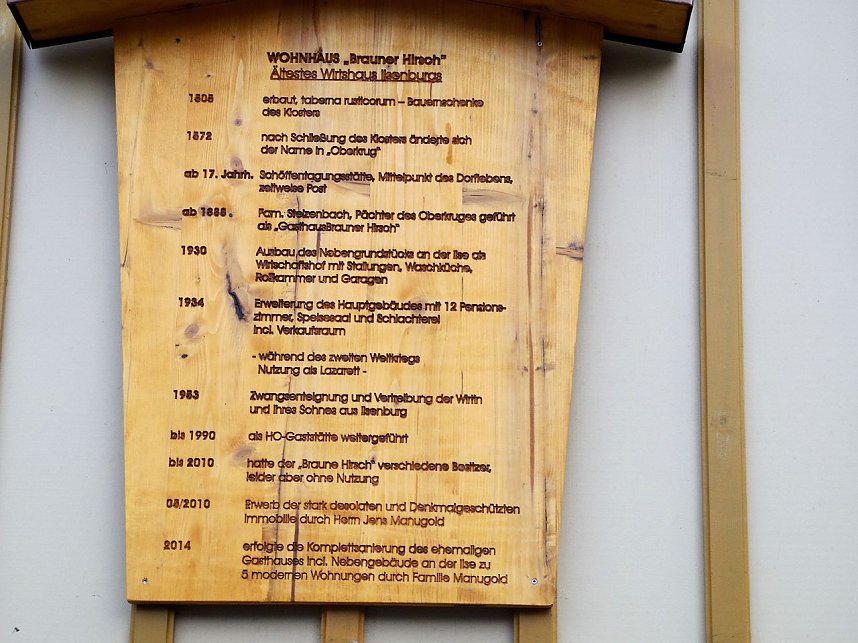 WOHNHAUS „Brauner Hirsch“
Ältestes Wirtshaus Ilsenburgs
1505 erbaut, taberna rusticorum – Bauernschenke
des Klosters
1572 nach Schließung des Klosters änderte sich
der Name in „Oberkrug“
ab 17. Jahrh. Schöffentagungsstätte, Mittelpunkt des Dorflebens,
zeitweise Post
ab 1888 Fam. Stelzenbach, Pächter des Oberkruges geführt
als „GasthausBrauner Hirsch“
1930 Ausbau des Nebengrundstücks an der Ilse als
Wirtschaftshof mit Stallungen, Waschküche,
Rollkammer und Garagen
1934 Erweiterung des Hauptgebäudes mit 12 Pensions-
zimmer, Speisesaal und Schlachterei
incl. Verkaufsraum
- während des zweiten Weltkriegs
Nutzung als Lazarett -
1953 Zwangsenteignung und Vertreibung der Wirtin
und ihres Sohnes aus Ilsenburg
bis 1990 als HO-Gaststätte weitergeführt
bis 2010 hatte der „Braune Hirsch“ verschiedene Besitzer,
leider aber ohne Nutzung
05/2010 Erwerb der stark desolaten und Denkmalgeschützten
Immobilie durch Herrn Jens Manugold
2014 erfolgte die Komplettsanierung des ehemaligen
Gasthauses incl. Nebengebäude an der Ilse zu
5 modernen Wohnungen durch Familie Manugold